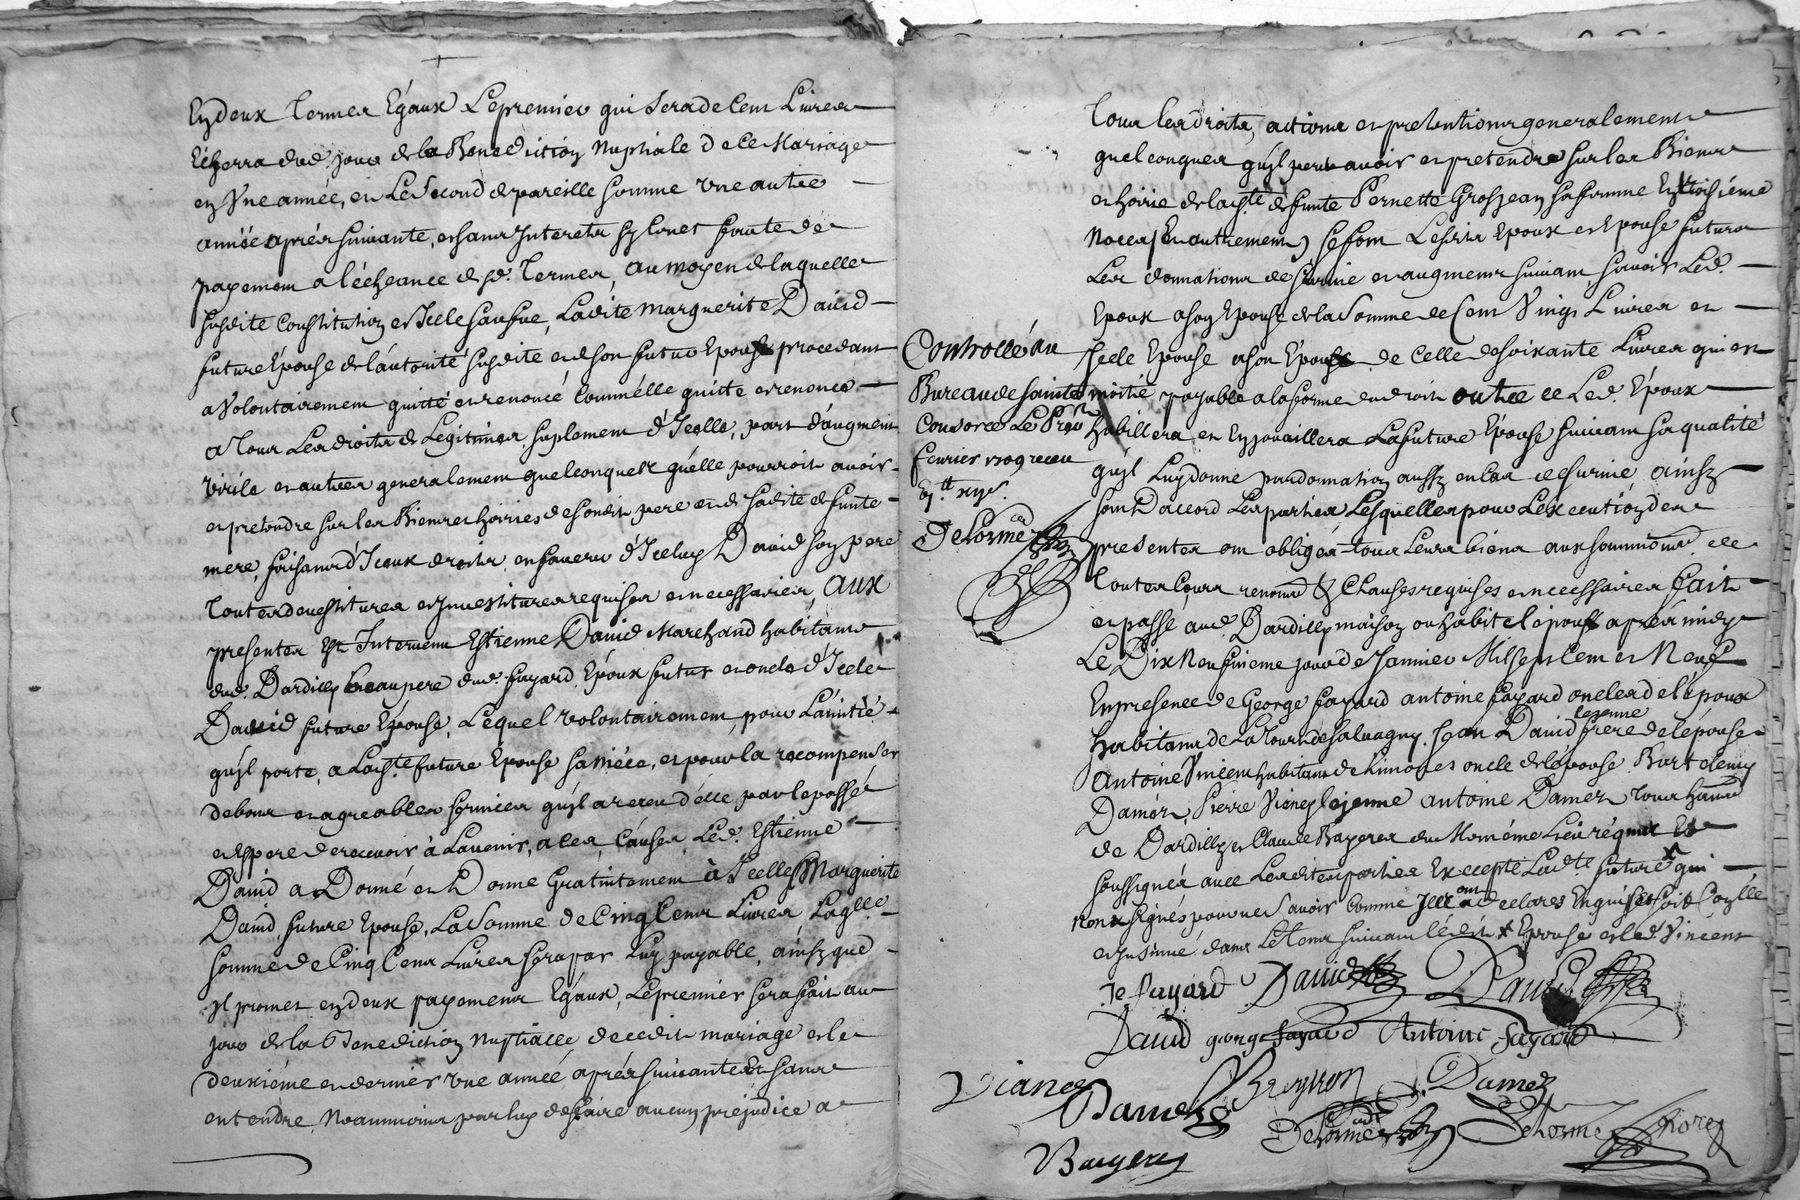 En deux termes Egaux Le premier qui sera de Cent Livres
Echerra dud. jour de la Benediction Nuptiale de ce Mariage
en Une année, et Le Second de pareille somme une autre
année apres suivante, et sans Interets sy ce n'est faute de
payement a l'écheance desd. Termes, au moyen de laquelle
susdite Constitution et Icelle sauve, Ladite Marguerite David
future Epouse de l'autorité susdite et de son futur Epoux procedant
a Volontairement quitté et renoncé comm'élle quitte et renonce
a tous Les droits de Legitime, suplement d'Icelle, part d'augment
virile et autres generalement quelconques qu'élle pourroit avoir
et pretendre sur les Biens et hoiries de sondit pere et de sadite defunte
mere, faisant d'Iceux droits en faveur d'Iceluy David son pere
toutes devestitures et Investitures requises et necessaires, AUX
presentes Est Intervenu Estienne David Marchand habitant
dud. Dardilly beaupere dud. fayard Epoux futur et oncle d'Icele
David future Epouse, Lequel volontairement pour L'amitié
qu'il porte, a Lad.te future Epouse sa niéce, et pour la recompenser
de bons et agreables services qu'il a receu d'élle par le passé
et Espere de recevoir à L'avenir, a ces Causes Led. Estienne
David a Donné et Donne Gratuitement à Icelle Marguerite
David, future Epouse, La Somme de Cinq Cent Livres Laq.lle
somme de Cinq Cent Livres sera par Luy payable, ainsy que
Il promet en deux payements Egaux, Le premier sera fait au
jour de la Benediction Nuptialle de cedit mariage et le
deuxiéme et dernier une année aprés suivante Et sans
entendre Neanmoins par luy de faire aucun préjudice a
tous les droits, actions et pretentions generalement
quelconques qu'il peut avoir et pretendre sur les Biens
et hoirie de lad.te defunte Pernette Grosjean sa femme En troisiéme
Noces, Et autrement, se font Lesd. Epoux et Epouse futurs
Les donnations de survie et augment suivant, savoir Led.
Epoux a son Epouse de la Somme de Cent Vingt Livres et
Icele Epouse a son Epoux de Celle de soixante Livres qui est
moitié payable a la forme du droit outre ce Led. Epoux
habillera et Enjouaillera La future Epouse suivant sa qualité
qu'il Luy donne par donnation aussy en cas de survie, ainsy
sont D'accord Les parties Lesquelles pour L'éxécution des
presentes ont obligés tous Leurs biens aux soumi.ons de
toutes Cours renon.ns & Clauses requises et necessaires Fait
et passé aud. Dardilly maison où habite l'épouse aprés midy
Le Dix Neufvieme jour de Janvier Mil sept Cent et Neuf
En presence de George fayard antoine fayard oncles de l'époux
habitants de La Tour de Salvagny, Jean David le jeune frere de l'épouse
Antoine Vincent habitant de Limonest oncle de l'épouse Bartelemy
Damér, Pierre Vianey le jeune antoine Damez tous hab.
de Dardilly et Claude Bageres du Mesme Lieu réquis Et
soussignés avec Lesdites parties Excepté Lad.te future x qui
n'ont signés pour ne savoir Comme Icelles ont declarés Enquis et soit Scellé
et Insinué dans Le tems suivant l'édit x Epouse et led. Vincent
Controllé au
Bureau de Sainte
Consorce Le Pre.r
fevrier 1709 receu
Delorme
Je Fayard David David
David george fayard Antoine fayard
Vianey Damez Damez
Delorme Delorme
Bageres